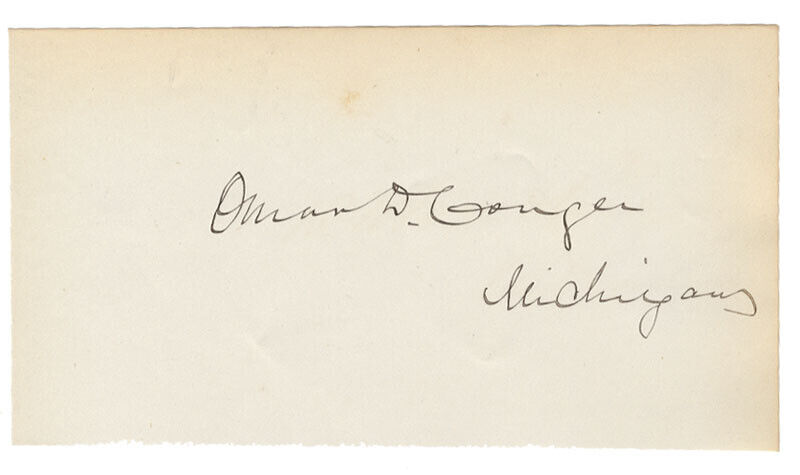 Omar D. Conger
Michigan